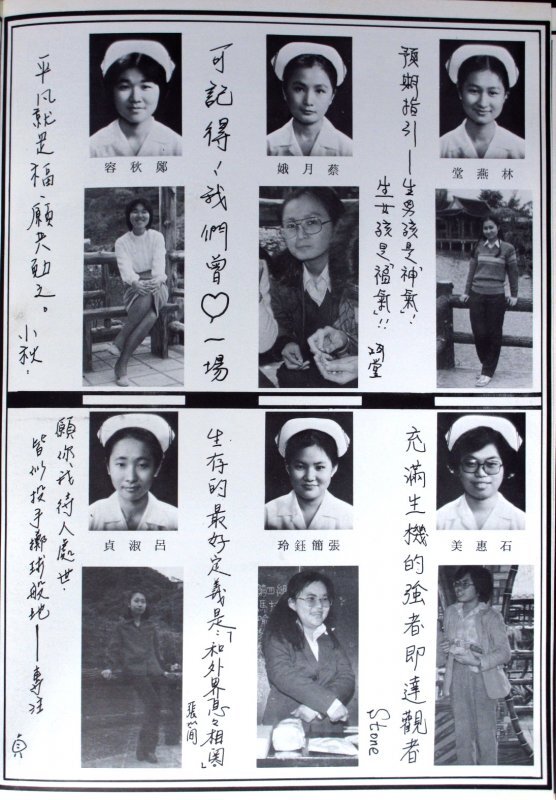 林燕堂
預期指引—生男孩是"神氣"!
生女孩是"福氣"!!
蔡月娥
可記得!我們曾♡一場
鄭秋容
平凡就是福,願共勉之。
小秋
石惠美
充滿生機的強者即達觀者
Stone
張簡鈺玲
生存的最好定義是:「和外界息々相關」
張簡
呂淑貞
願你、我待人處世,
皆似投手擲球般地——專注
貞